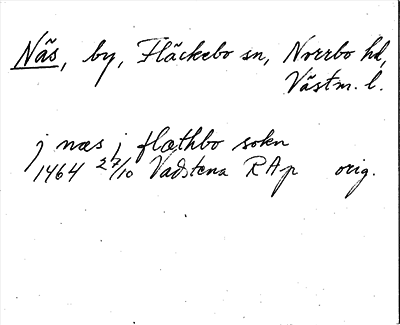 Näs, by, Fläckebo sn, Norrbo hd,
Västm. l.
j næs j flæthbo sokn
1464 27/10 Vadstena RAp orig.